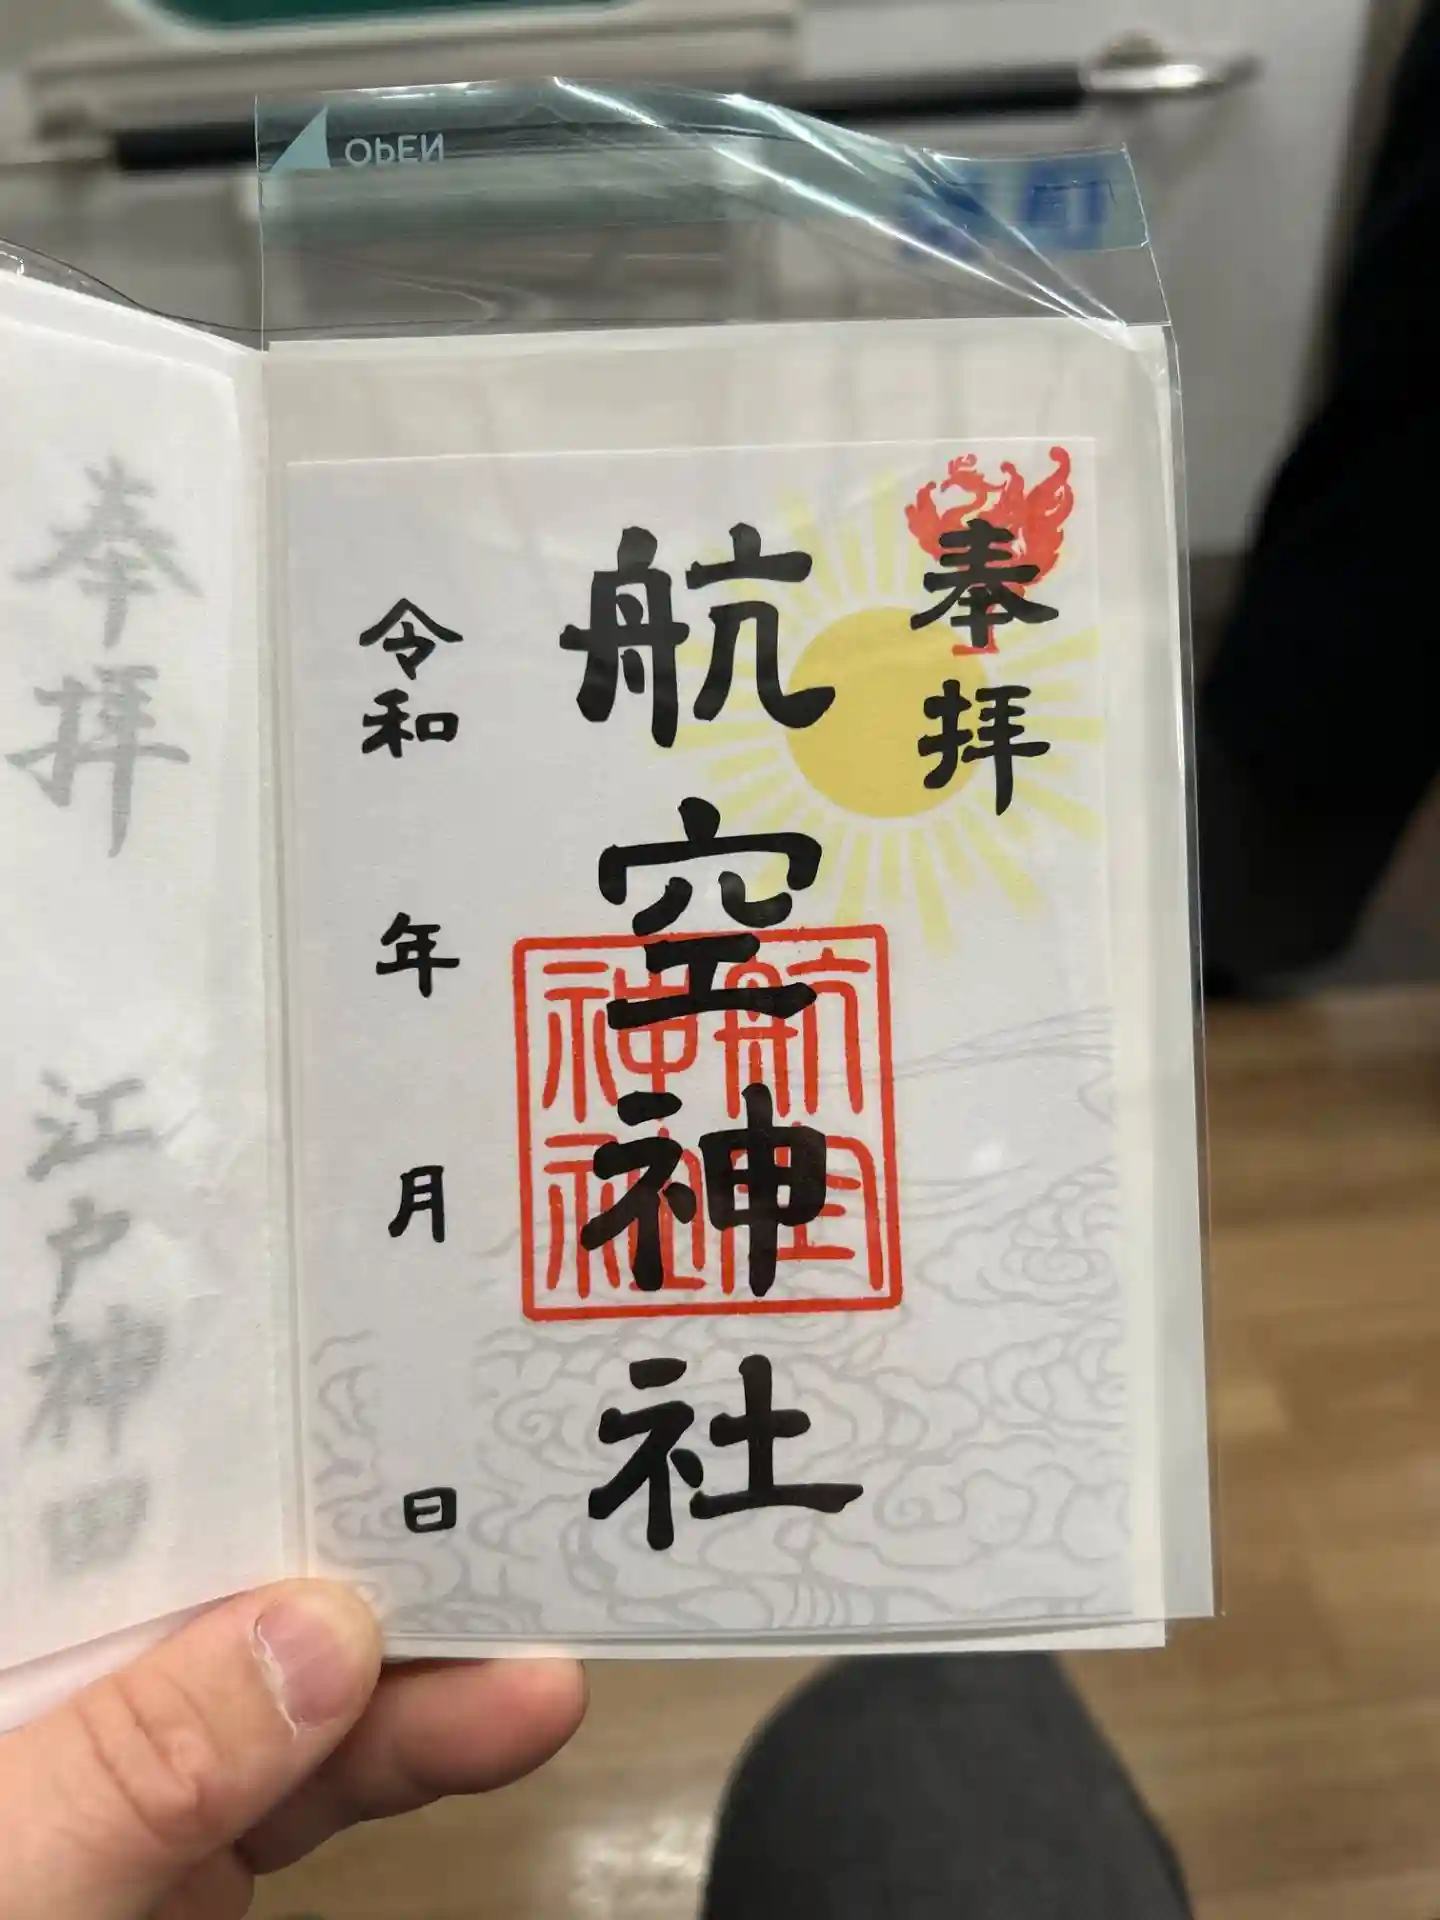 OPEN
奉拝
航空神社
航空神社
令和 年 月 日
奉拝
江戸神田